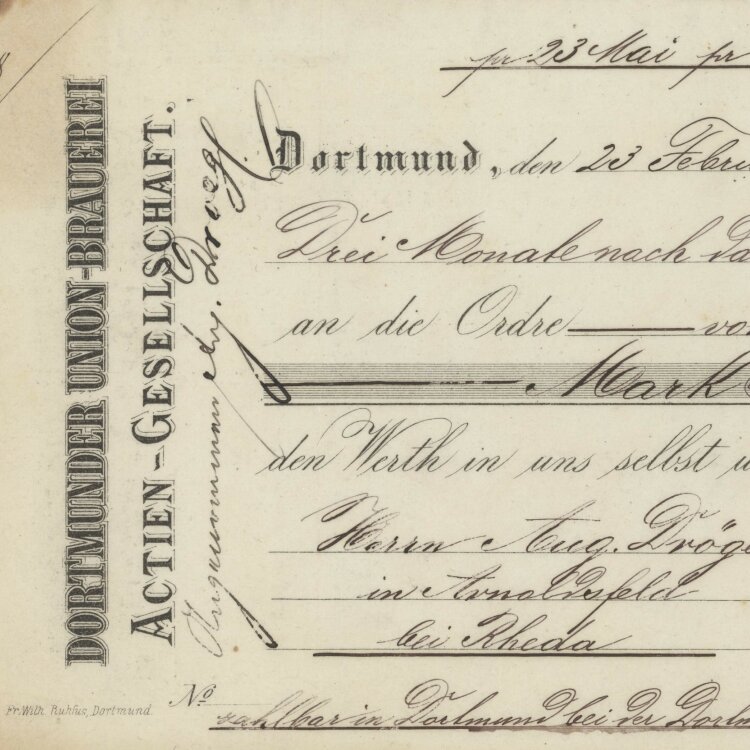 DORTMUNDER UNION-BRAUEREI
ACTIEN-GESELLSCHAFT.
Angenommen Aug. Droege
pr 23 Mai pr
Dortmund, den 23 Febru
Drei Monate nach da
an die Ordre vo
Mark
den Werth in uns selbst u
Herrn Aug. Dröge
in Arnoldsfeld
bei Rheda
No
zahlbar in Dortmund bei der Dortm
Fr. Wilh. Ruhfus, Dortmund.